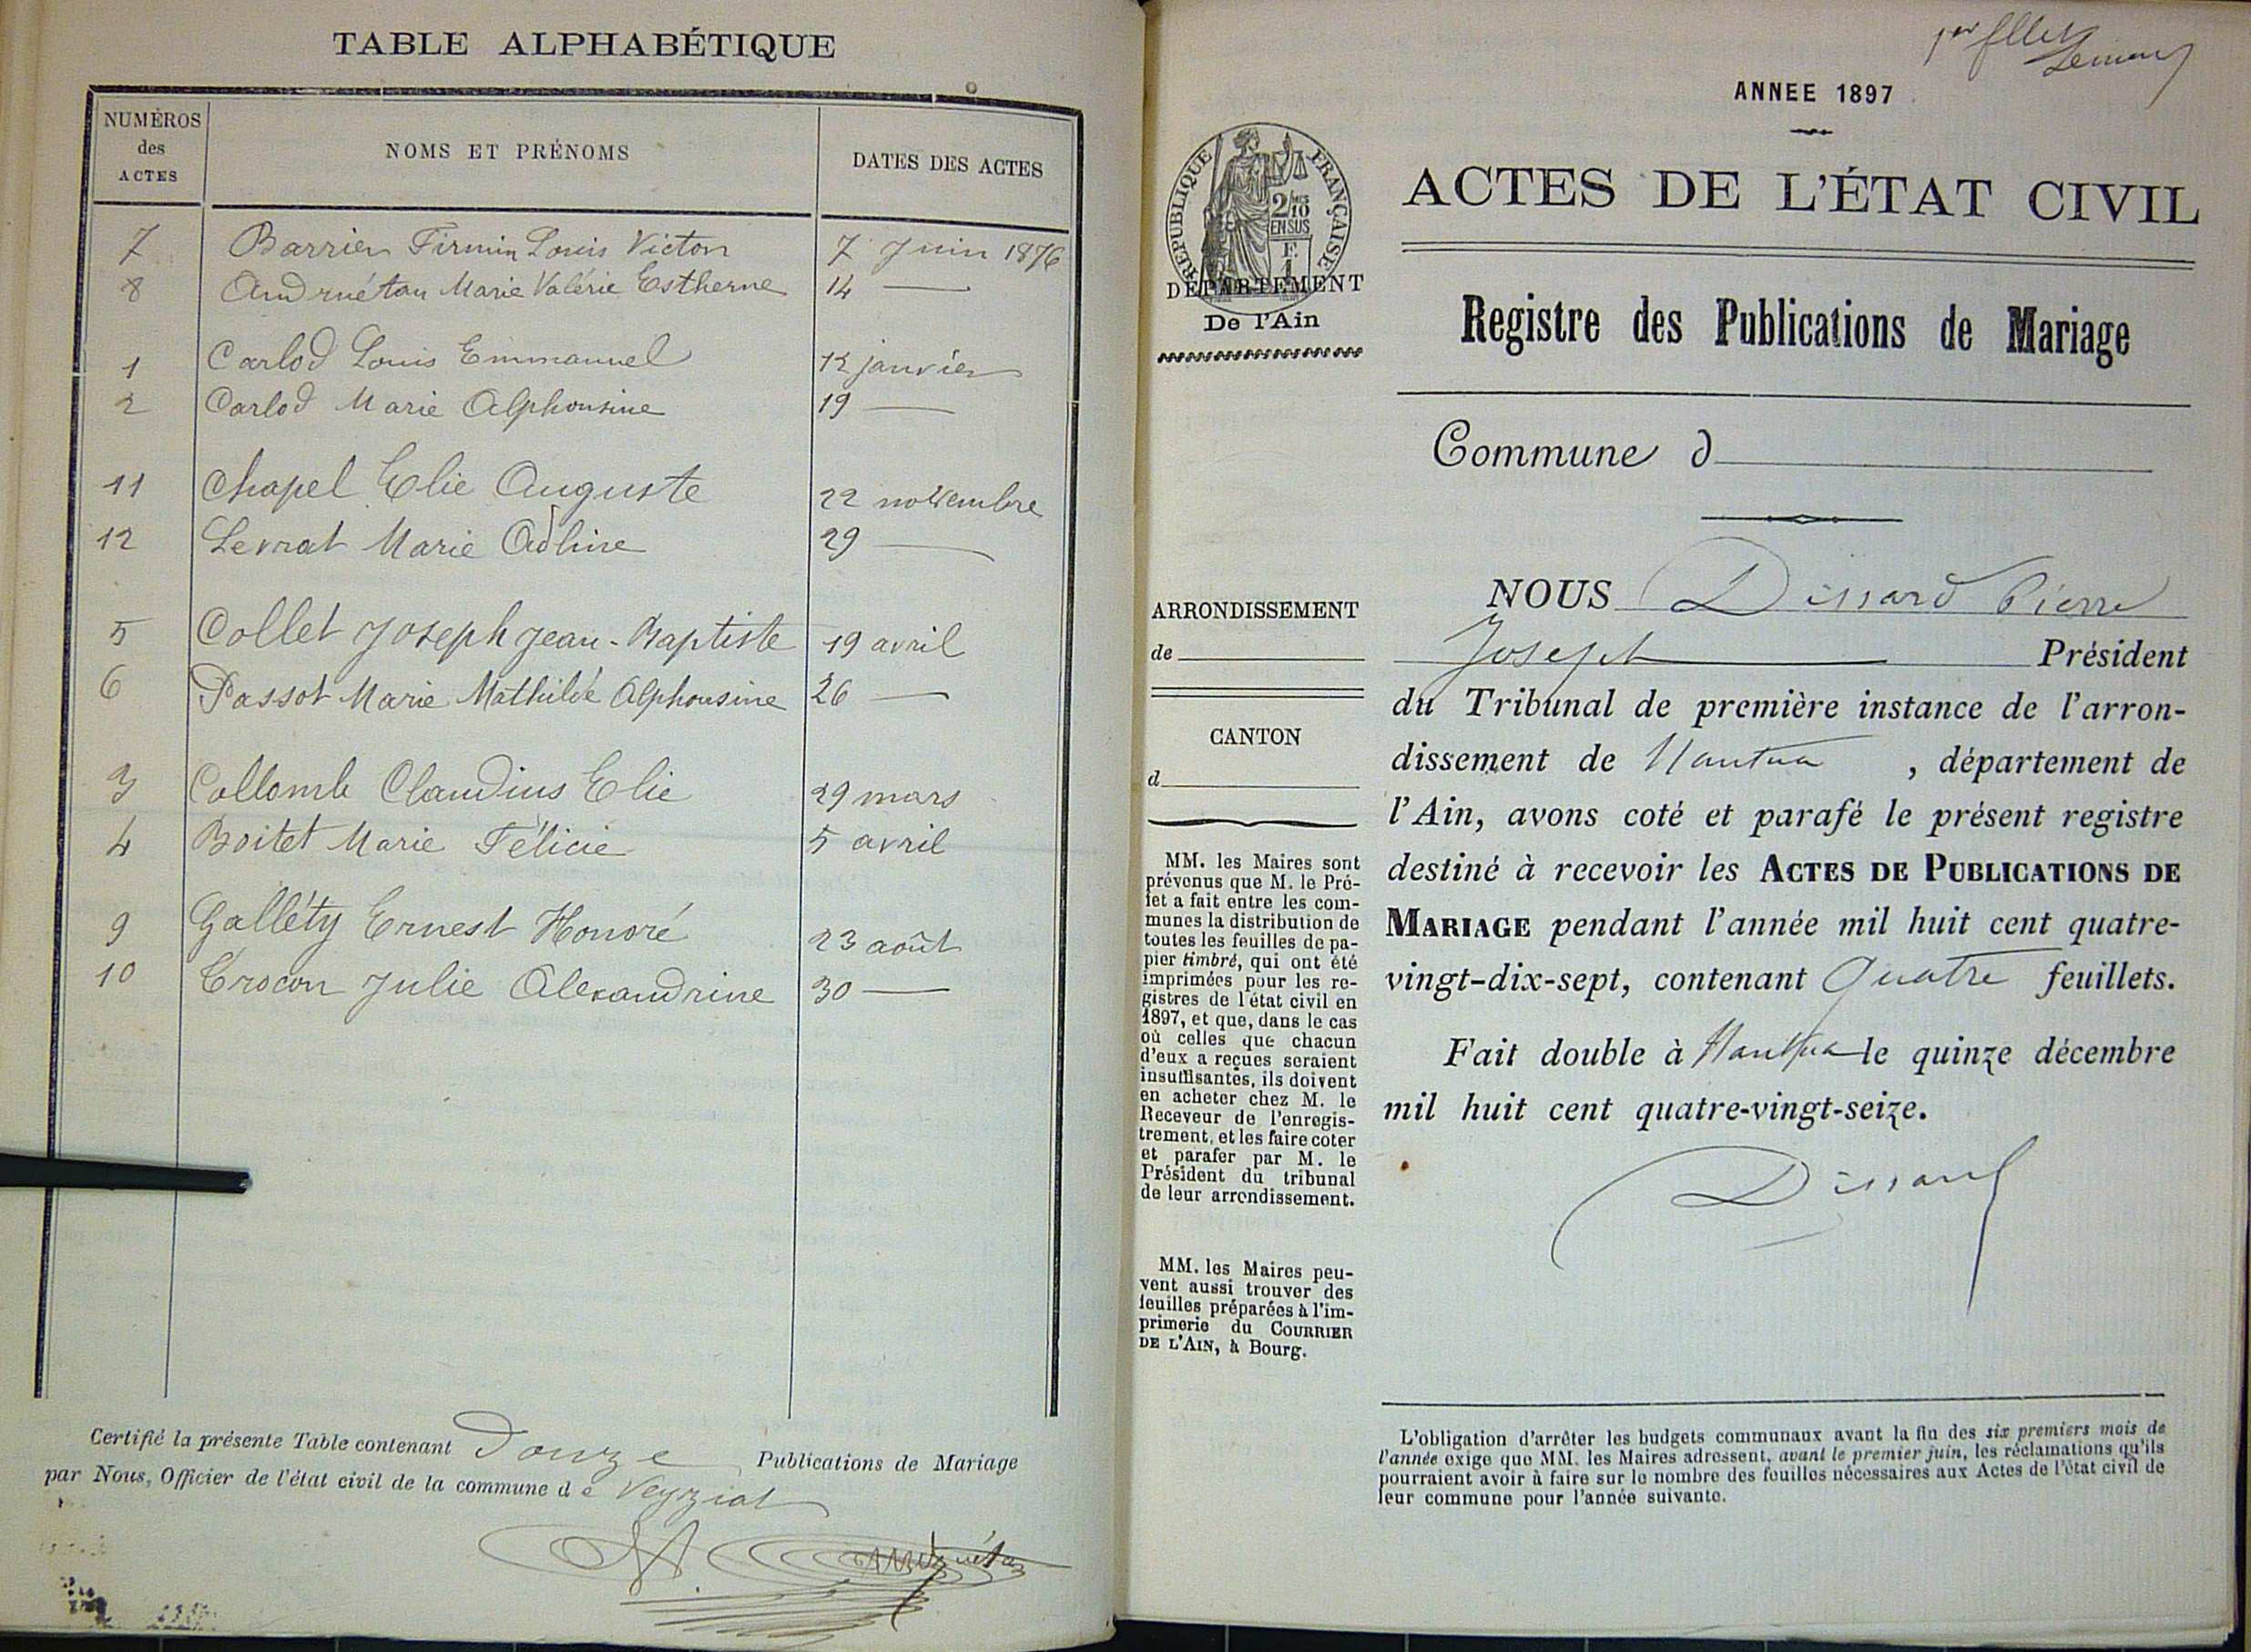 TABLE ALPHABÉTIQUE
NUMÉROS des ACTES
NOMS ET PRÉNOMS
DATES DES ACTES
7 Barrier Firmin Louis Victor 7 Juin 1876
8 Andruétan Marie Valérie Estherne 14 —
1 Carlod Louis Emmanuel 12 janvier
2 Carlod Marie Alphonsine 19 —
11 Chapel Elie Auguste 22 novembre
12 Levrat Marie Adline 29 —
5 Collet Joseph Jean-Baptiste 19 avril
6 Passot Marie Mathilde Alphonsine 26 —
3 Collomb Claudius Elie 29 mars
4 Boitet Marie Félicie 5 avril
9 Galléty Ernest Honoré 23 août
10 Crocon Julie Alexandrine 30 —
Certifié la présente Table contenant Douze Publications de Mariage
par Nous, Officier de l'état civil de la commune de Veyziat
1er fllet
ANNEE 1897
REPUBLIQUE FRANÇAISE
2/10
EN SUS
F.
1
DÉPARTEMENT
De l'Ain
ACTES DE L'ÉTAT CIVIL
Registre des Publications de Mariage
Commune d
ARRONDISSEMENT
de
CANTON
d
MM. les Maires sont
prévenus que M. le Pré-
fet a fait entre les com-
munes la distribution de
toutes les feuilles de pa-
pier timbré, qui ont été
imprimées pour les re-
gistres de l'état civil en
1897, et que, dans le cas
où celles que chacun
d'eux a reçues seraient
insuffisantes, ils doivent
en acheter chez M. le
Receveur de l'enregis-
trement, et les faire coter
et parafer par M. le
Président du tribunal
de leur arrondissement.
MM. les Maires peu-
vent aussi trouver des
feuilles préparées à l'im-
primerie du COURRIER
DE L'AIN, à Bourg.
NOUS Dissard Pierre
Joseph Président
du Tribunal de première instance de l'arron-
dissement de Nantua , département de
l'Ain, avons coté et parafé le présent registre
destiné à recevoir les ACTES DE PUBLICATIONS DE
MARIAGE pendant l'année mil huit cent quatre-
vingt-dix-sept, contenant Quatre feuillets.
Fait double à Nantua le quinze décembre
mil huit cent quatre-vingt-seize.
Dissard
L'obligation d'arrêter les budgets communaux avant la fin des six premiers mois de
l'année exige que MM. les Maires adressent, avant le premier juin, les réclamations qu'ils
pourraient avoir à faire sur le nombre des feuilles nécessaires aux Actes de l'état civil de
leur commune pour l'année suivante.